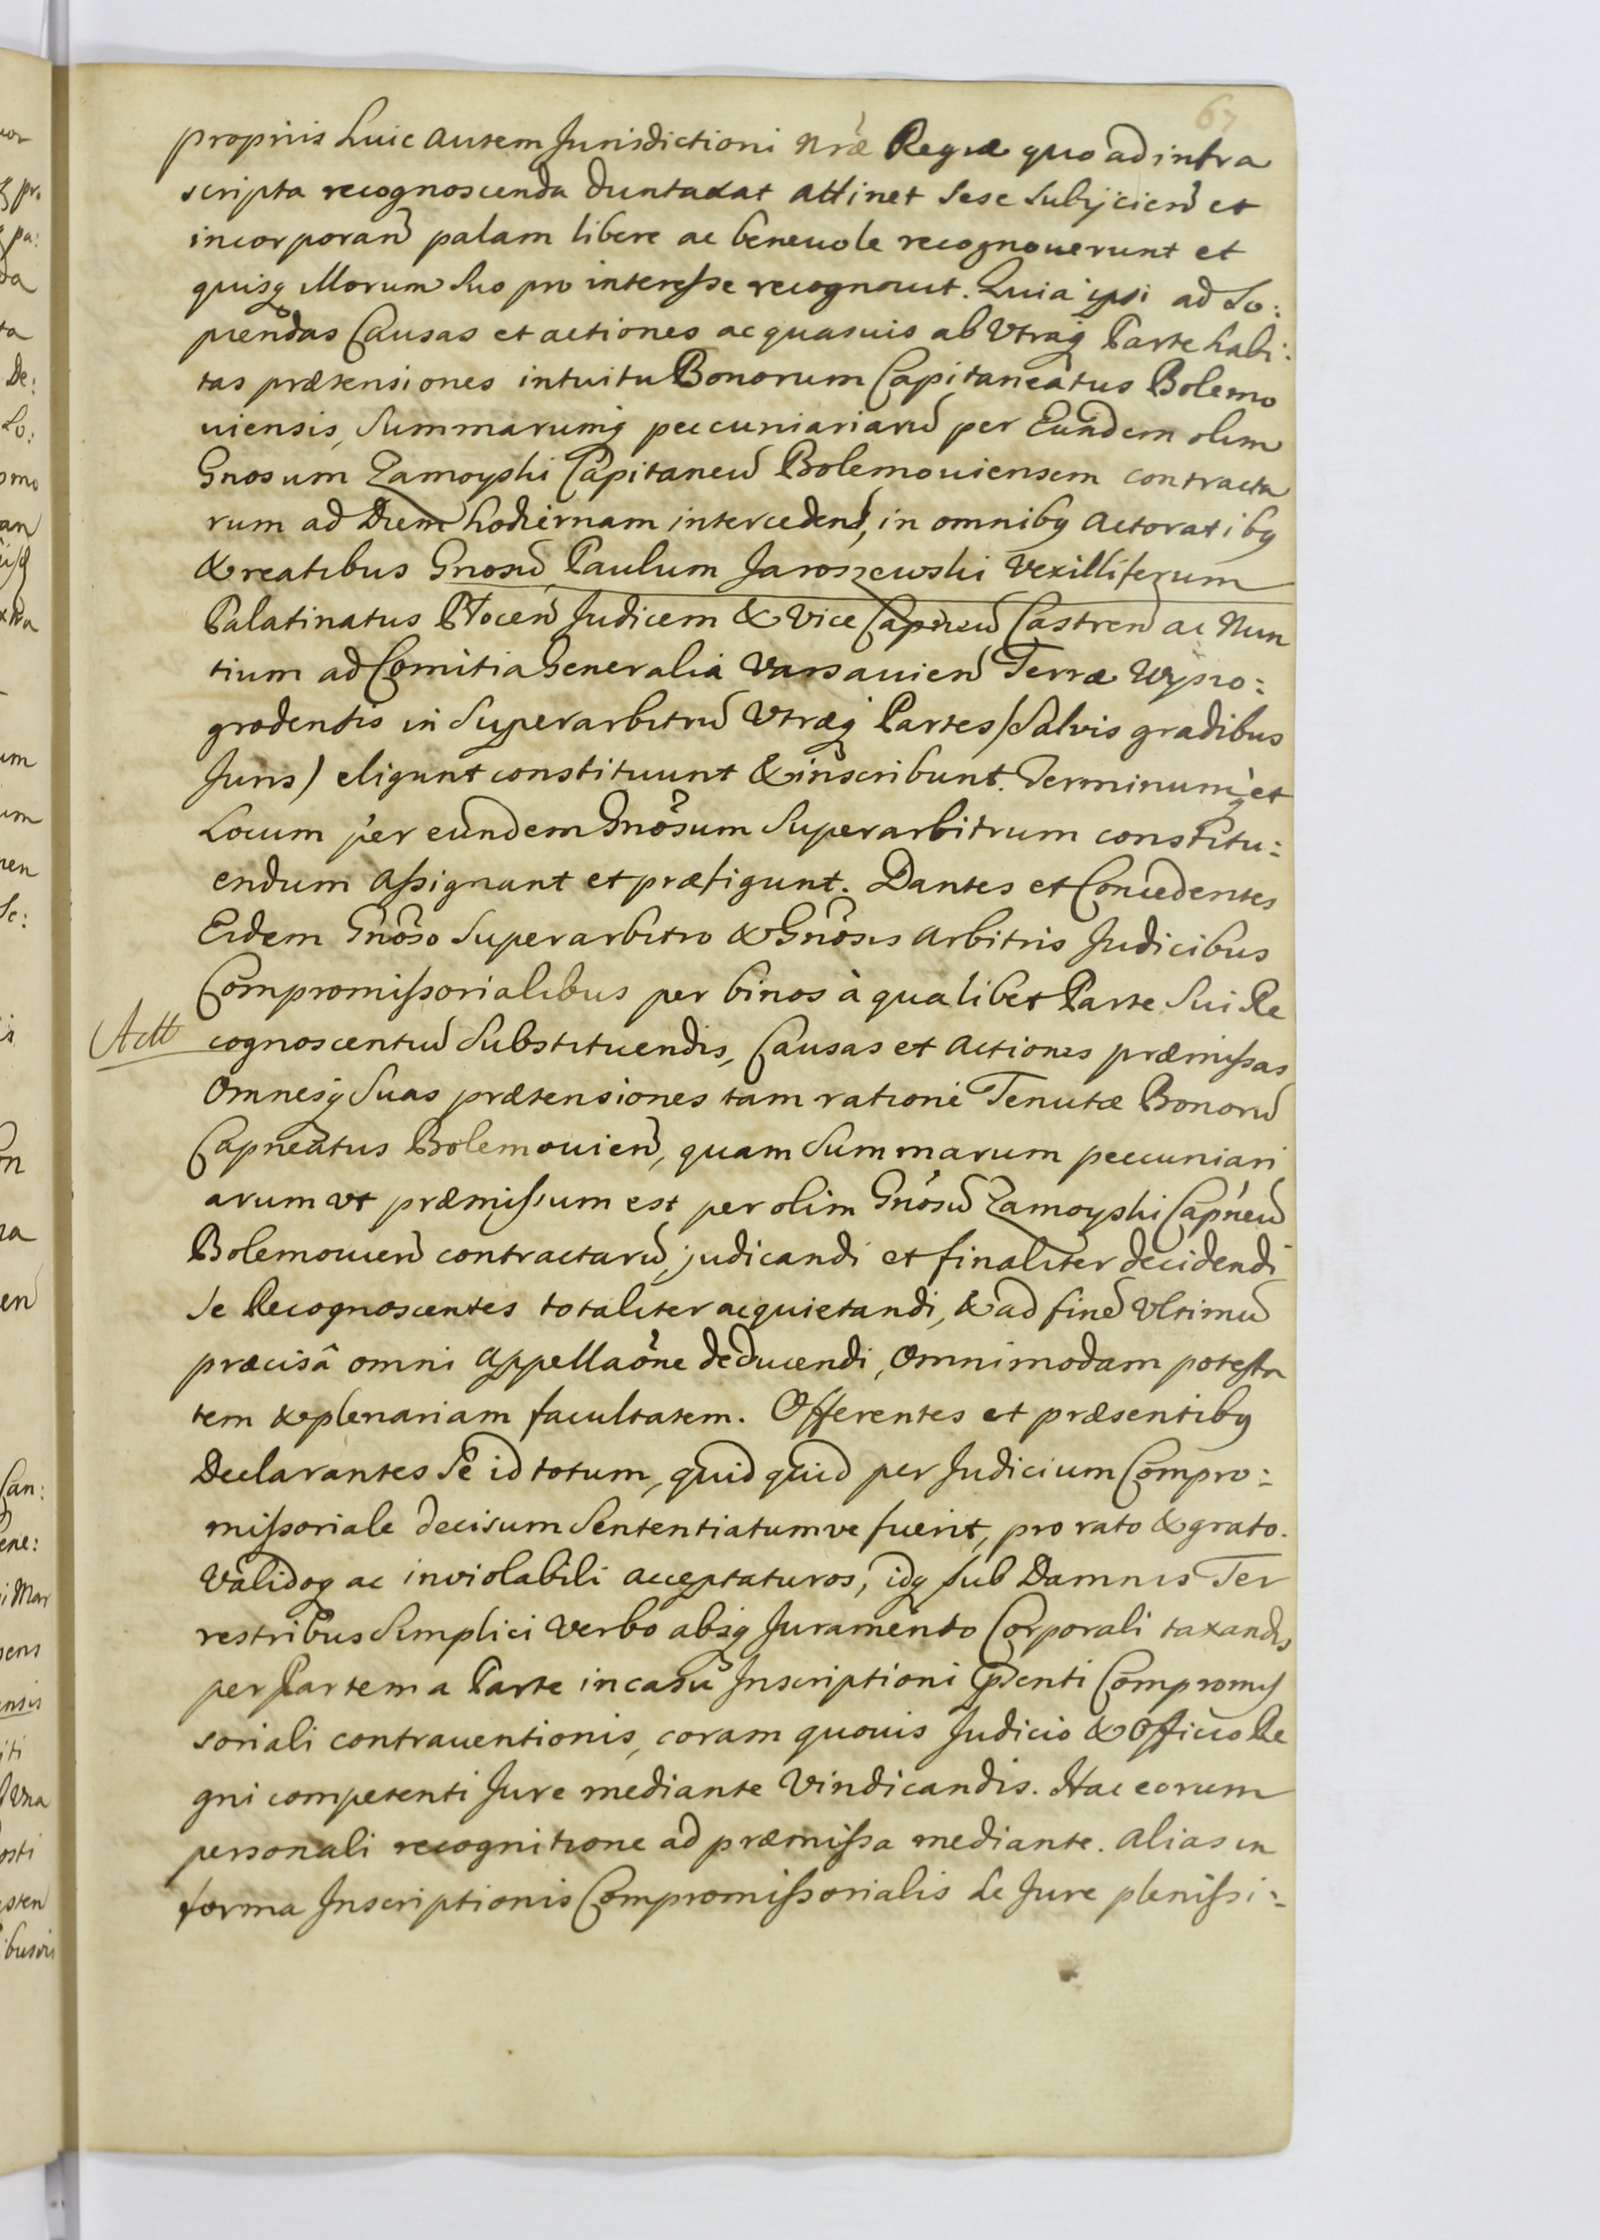 67
propriis huic autem Jurisdictioni nrae Regiae quo ad infra
scripta recognoscenda duntaxat attinet sese subijcien et
incorporan palam libere ac beneuole recognouerunt et
quisq illorum suo pro interesse recognouit. Quia ipsi ad So:
piendas Causas et actiones ac quasuis ab Vtraq Parte habi:
tas praetensiones intuitu Bonorum Capitaneatus Bolemo
uiensis, Summarumq peccuniariaru per Eundem olim
Gnosum Zamoyski Capitaneu Bolemouiensem contracta
rum ad Diem hodiernam interceden, in omnibq actoratibq
& reatibus Gnosu Paulum Jaroszewski Vexilliferum
Palatinatus Plocen Judicem & Vice Capneu Castren ac Nun
tium ad Comitia Generalia Varsauien Terrae Wyszo:
grodensis in Superarbitru Vtraeq Partes /Salvis gradibus
Juris) eligunt constituunt & inscribunt. Terminumq et
Locum per eundem Gnosum Superarbitrum constitu:
endum assignant et praefigunt. Dantes et Concedentes
Eidem Gnoso Superarbitro & Gnosis Arbitris Judicibus
Compromissorialibus per binos à qualibet Parte Sui Re
cognoscentiu Substituendis, Causas et Actiones praemissas
Omnesq Suas praetensiones tam ratione Tenutae Bonoru
Capneatus Bolemouien, quam Summarum peccuniari
arum vt praemissum est per olim Gnosu Zamoyski Capneu
Bolemouien contractaru, judicandi et finaliter decidendi
Se Recognoscentes totaliter acquietandi, & ad fine Vltimu
praecisâ omni Appellaone deducendi, Omnimodam potesta
tem & plenariam facultatem. Offerentes et praesentibq
Declarantes Se id totum, quid quid per Judicium Compro:
missoriale decisum Sententiatumve fuerit, pro rato & grato.
Validoq ac inviolabili acceptaturos, idq sub Damnis Ter
restribus Simplici Verbo absq Juramento Corporali taxandis
per Partem a Parte in casu Inscriptioni psenti Compromis
soriali contrauentionis, coram quouis Judicio & Officio Re
gni competenti Jure mediante Vindicandis. Hac eorum
personali recognitione ad praemissa mediante. Alias in
forma Inscriptionis Compromissorialis de Jure plenissi: